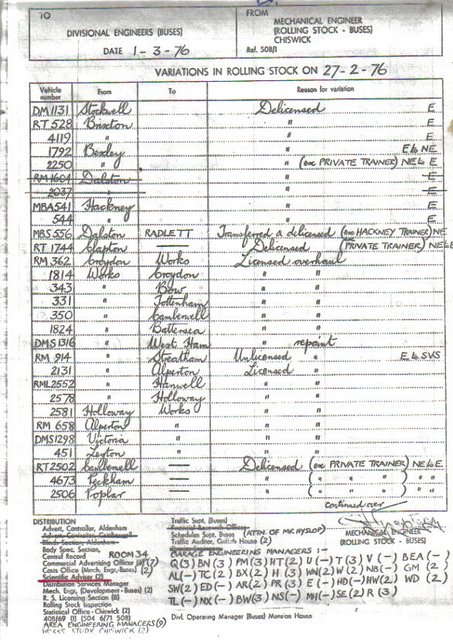 TO
FROM
DIVISIONAL ENGINEERS (BUSES)
MECHANICAL ENGINEER
(ROLLING STOCK - BUSES)
CHISWICK
DATE 1-3-76
Ref. 508/1
VARIATIONS IN ROLLING STOCK ON 27-2-76
Vehicle number From To Reason for variation
DM1131 Stockwell Delicensed E
RT528 Brixton " E
4119 " " E
1792 Bexley " E to NE
2250 " " (ex PRIVATE TRAINER) NE to E
RM1604 Dalston " E
2037 " " E
MBA541 Hackney " E
544 " " E
MBS556 Dalston RADLETT Transferred & delicensed (ex HACKNEY TRAINER) NE
RT1744 Clapton — Delicensed (PRIVATE TRAINER) NE to E
RM362 Croydon Works Licensed overhaul
1814 Works Croydon " "
343 " Bow " "
331 " Tottenham " "
350 " Camberwell " "
1824 " Battersea " "
DMS1316 " West Ham " repaint
RM914 " Streatham Unlicensed " E to SVS
2131 " Alperton Licensed "
RML2552 " Hanwell " "
2578 " Holloway " "
2581 Holloway Works " "
RM658 Alperton " " "
DMS1298 Victoria " " "
451 Leyton " " "
RT2502 Camberwell — Delicensed (ex PRIVATE TRAINER) NE to E
4673 Peckham — " ( " " " ) " "
2506 Poplar — " ( " " " ) " "
continued over
DISTRIBUTION
Advert. Controller, Aldenham
Body Spec. Section,
Central Record ROOM 34
Commercial Advertising Officer (7)
Costs Office (Mech. Eng.-Buses) (2)
Scientific Adviser (2)
Distribution Services Manager
Mech. Engr. (Development - Buses) (2)
R. S. Licensing Section (8)
Rolling Stock Inspection
Statistical Office - Chiswick (2)
408/69 (1) (504 6/71 508)
AREA ENGINEERING MANAGERS(9)
WORKS STUDY CHISWICK (2)
Traffic Supt. (Buses)
Schedules Supt. (Buses) (ATTN. OF MR HYSLOP)
Traffic Auditor, Griffith House (2)
MECHANICAL ENGINEER
(ROLLING STOCK - BUSES)
GARAGE ENGINEERING MANAGERS :-
Q(3) BN(3) PM(3) HT(2) U(-) T(3) V(-) BEA(-)
AL(-) TC(2) BX(2) H(3) WN(2) W(2) NB(-) GM(2)
SW(2) ED(-) AR(2) PR(3) E(-) HD(-) HW(2) WD(2)
TL(-) NX(-) BW(3) NS(-) MH(-) SE(2) R(3)
Divl. Operating Manager (Buses) Mansion House